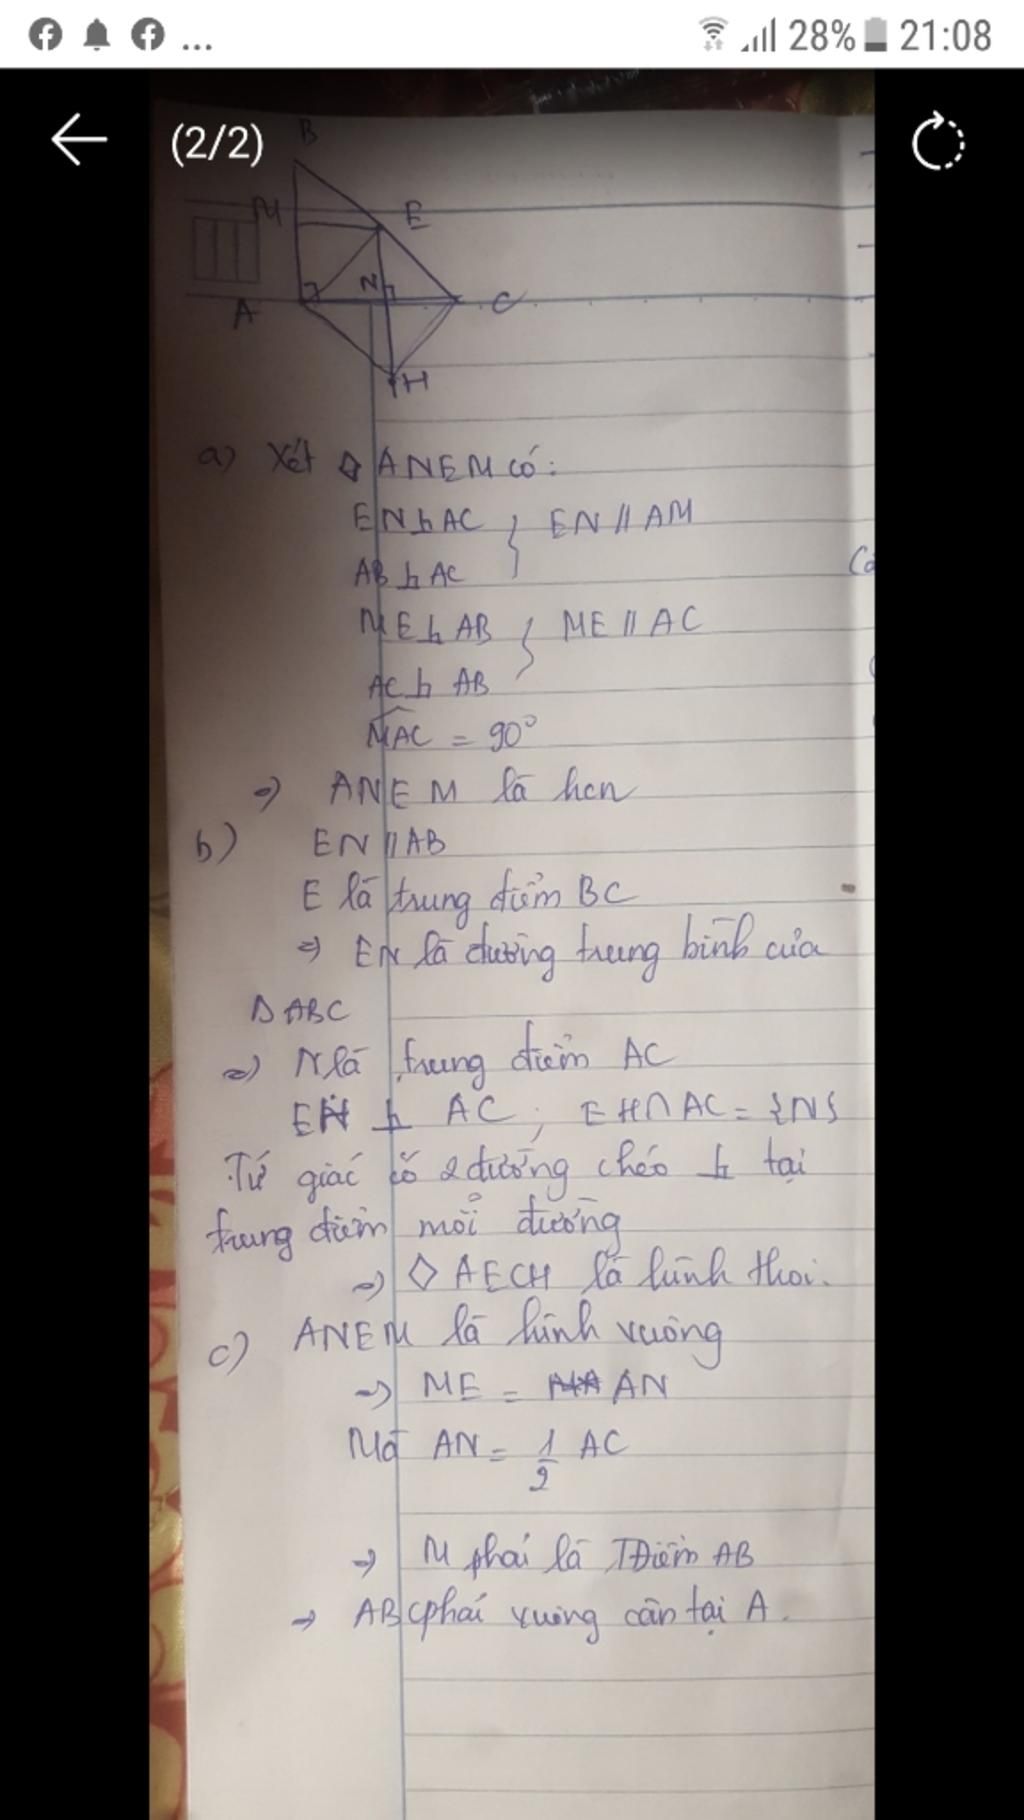 ... 28% 21:08
(2/2)
B
M E
N
A C
H
a) Xét ◇ ANEM có:
EN ⊥ AC } EN // AM
AB ⊥ AC
ME ⊥ AB } ME // AC
AC ⊥ AB
MAC = 90°
=> ANEM là hcn
b) EN // AB
E là trung điểm BC
=> EN là đường trung bình của
Δ ABC
=> N là trung điểm AC
EH ⊥ AC ; EH ∩ AC = {N}
Tứ giác có 2 đường chéo ⊥ tại
trung điểm mỗi đường
=> ◇ AECH là hình thoi.
c) ANEM là hình vuông
=> ME = AN
Mà AN = 1/2 AC
=> M phải là TĐiểm AB
=> ABC phải vuông cân tại A.